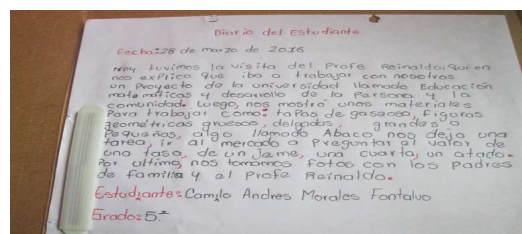 Diario del Estudiante
Fecha: 28 de marzo de 2016
Hoy tuvimos la visita del Profe Reinaldo, quien
nos explico que iba a trabajar con nosotros
un Proyecto de la universidad llamado Educación
matemáticas y desarrollo de la Persona y la
comunidad. Luego, nos mostró unos materiales
Para trabajar como: tapas de gaseosa, figuras
geométricas gruesas, delgadas, grandes o
Pequeñas, algo llamado Abaco nos dejo una
tarea, ir al mercado a Preguntar el valor de
una taso, de un jeme, una cuarta, un atado.
Por ultimo, nos tomamos fotos con los Padres
de familia y el Profe Reinaldo.
Estudiante: Camilo Andres Morales Fontalvo
Grado: 5º